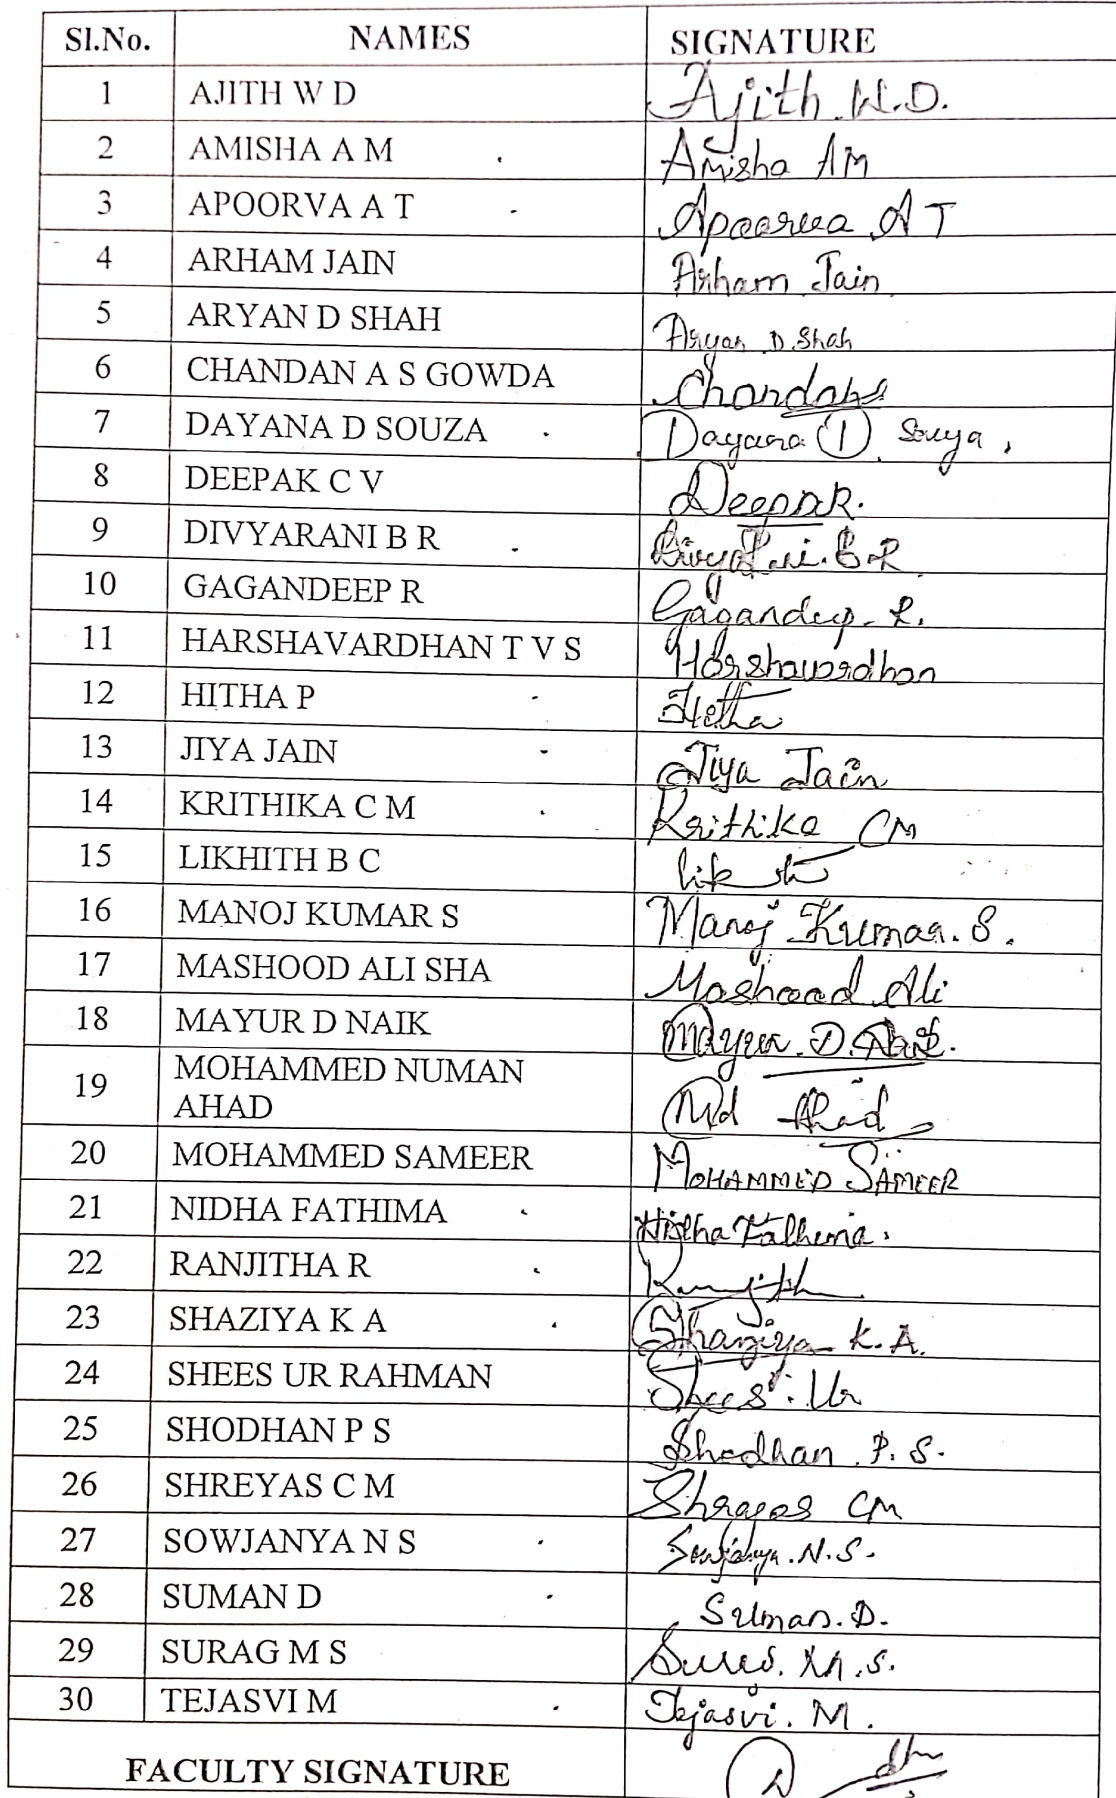 Sl.No. NAMES SIGNATURE
1 AJITH W D Ajith W.D.
2 AMISHA A M Amisha AM
3 APOORVA A T Apoorva A T
4 ARHAM JAIN Arham Jain
5 ARYAN D SHAH Aryan D Shah
6 CHANDAN A S GOWDA Chandan
7 DAYANA D SOUZA Dayana D Souza.
8 DEEPAK C V Deepak.
9 DIVYARANI B R B.R
10 GAGANDEEP R Gagandeep. R.
11 HARSHAVARDHAN T V S Harshavardhan
12 HITHA P Hitha
13 JIYA JAIN Jiya Jain
14 KRITHIKA C M Krithika CM
15 LIKHITH B C
16 MANOJ KUMAR S Manoj Kumar. S.
17 MASHOOD ALI SHA Mashood Ali
18 MAYUR D NAIK Mayur. D. Naik.
19 MOHAMMED NUMAN
AHAD Md Ahad
20 MOHAMMED SAMEER MOHAMMED SAMEER
21 NIDHA FATHIMA Nidha Fathima.
22 RANJITHA R
23 SHAZIYA K A Shaziya K.A.
24 SHEES UR RAHMAN Shees Ur
25 SHODHAN P S Shodhan P. S.
26 SHREYAS C M Shreyas CM
27 SOWJANYA N S Sowjanya. N.S.
28 SUMAN D Suman. D.
29 SURAG M S M.S.
30 TEJASVI M Tejasvi. M.
FACULTY SIGNATURE